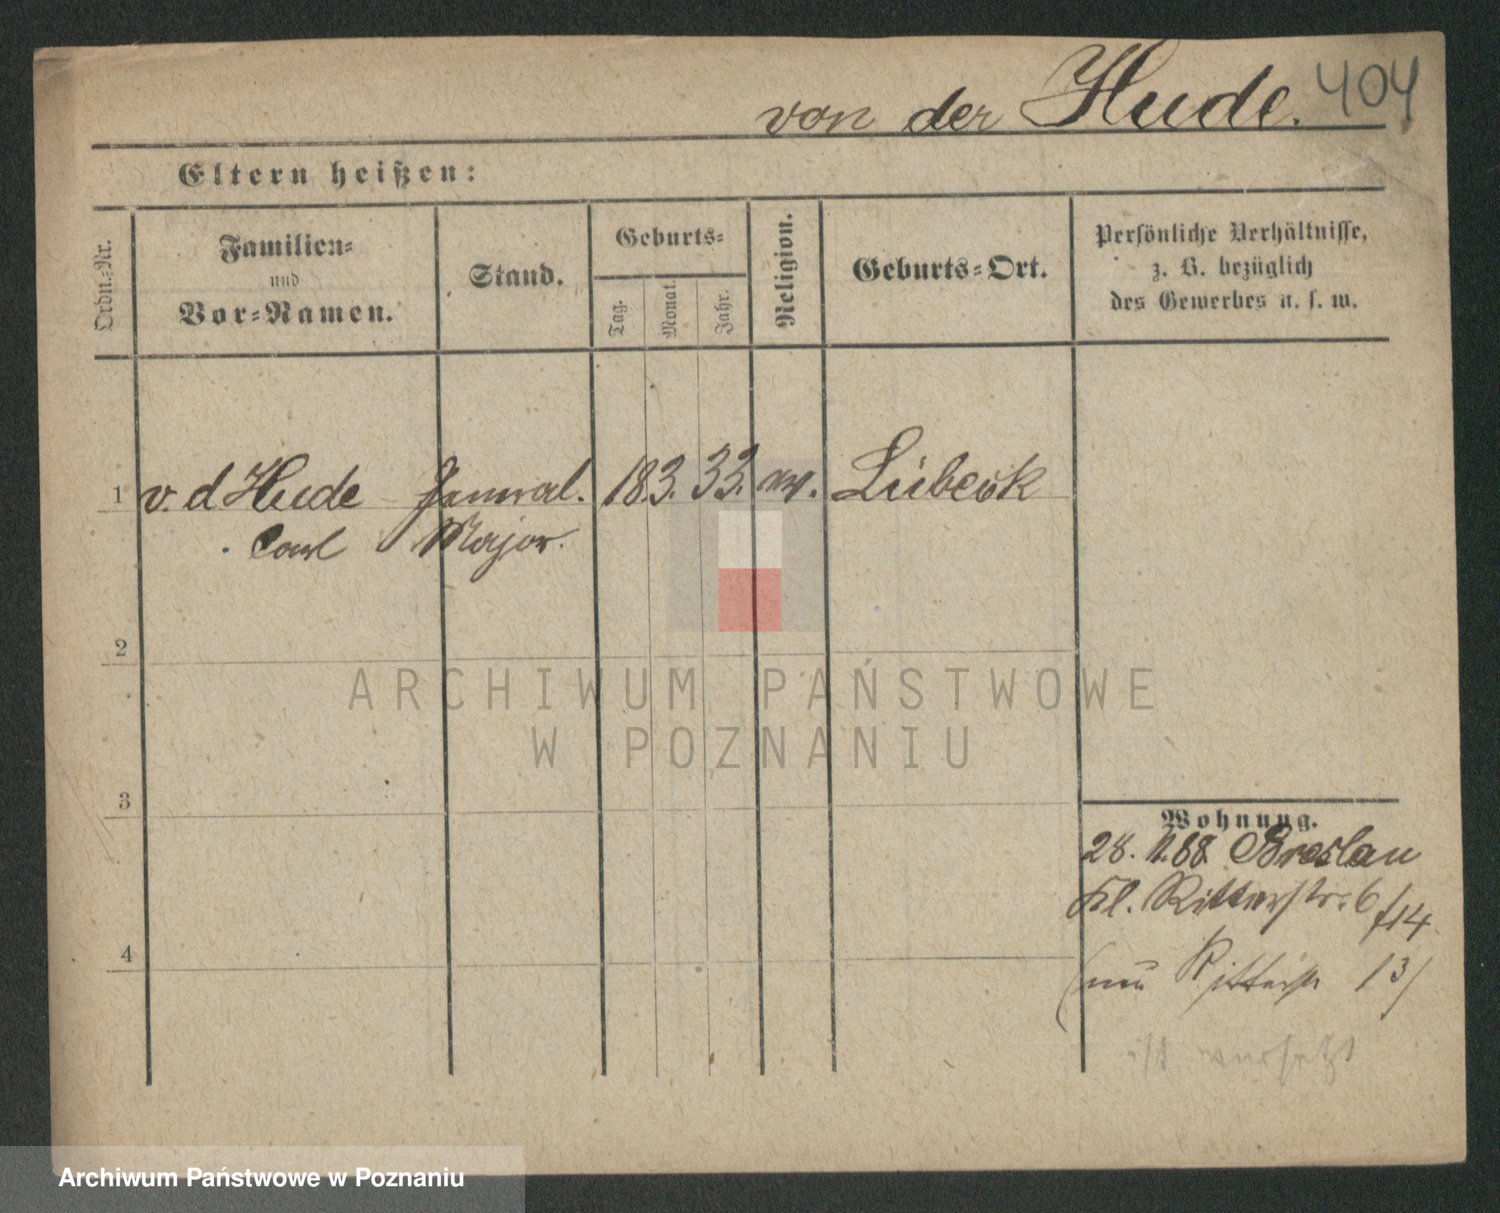 von der Hude. 404
Eltern heißen:
Ordn.-Nr.
Familien-
und
Vor-Namen.
Stand.
Geburts-
Tag.
Monat.
Jahr.
Religion.
Geburts-Ort.
Persönliche Verhältnisse,
z. B. bezüglich
des Gewerbes u. s. w.
1 v. d Hude General. 18. 3. 33. ev. Lübeck
Carl Major.
2
3
4
ARCHIWUM PAŃSTWOWE
W POZNANIU
Wohnung.
28. 11. 88 Breslau
Kl. Ritterstr. 6 /14
(nun Ritterstr 13)
versetzt
Archiwum Państwowe w Poznaniu